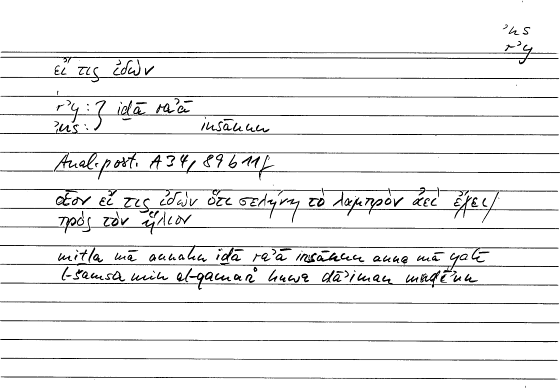 ʾns
rʾy
εἴ τις ἰδὼν
rʾy : } iḏā raʾā
ʾns : } insānun
Anal. post. A 34, 89 b 11 f
οἷον εἴ τις ἰδὼν ὅτι σελήνη τὸ λαμπρὸν ἀεὶ ἔχει /
πρὸς τὸν ἥλιον
miṯla mā annahu iḏā raʾā insānun anna mā yalī
l-šamsa min al-qamari huwa dāʾiman muḍīʾun